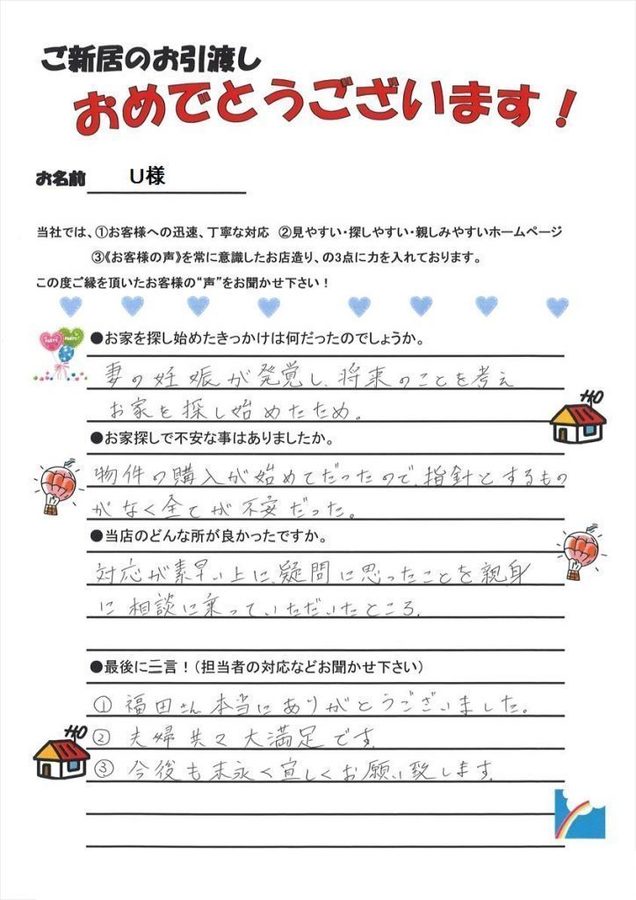 ご新居のお引渡し
おめでとうございます!
お名前 U様
当社では、①お客様への迅速、丁寧な対応 ②見やすい・探しやすい・親しみやすいホームページ
③《お客様の声》を常に意識したお店造り、の3点に力を入れております。
この度ご縁を頂いたお客様の“声”をお聞かせ下さい!
●お家を探し始めたきっかけは何だったのでしょうか。
妻の妊娠が発覚し、将来のことを考え
お家を探し始めたため。
●お家探しで不安な事はありましたか。
物件の購入が始めてだったので、指針とするもの
がなく全てが不安だった。
●当店のどんな所が良かったですか。
対応が素早い上に、疑問に思ったことを親身
に相談に乗っていただいたところ.
●最後に三言!(担当者の対応などお聞かせ下さい)
① 福田さん本当にありがとうございました。
② 夫婦共々大満足です.
③ 今後も末永く宜しくお願い致します.